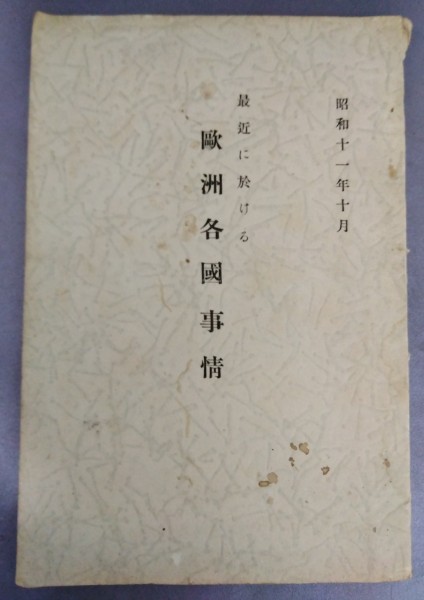 昭和十一年十月
最近に於ける
歐洲各國事情